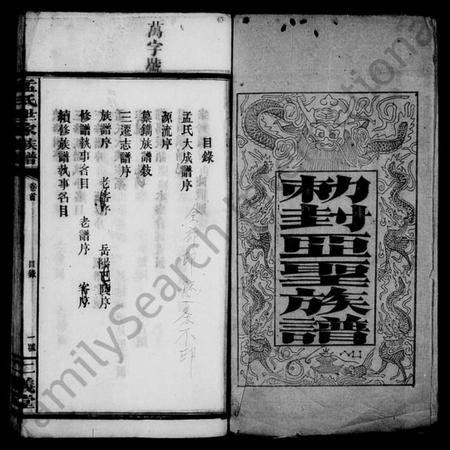 勅封亞聖族譜
萬字號
目錄
孟氏大成譜序
源流序
纂鐫族譜敘
三遷志譜序
族譜序 老譜序 岳陽巴陵序
修譜執事名目 老譜序 寄序
續修族譜執事名目
孟氏世家族譜 卷首 目錄 一 三義堂
FamilySearch International